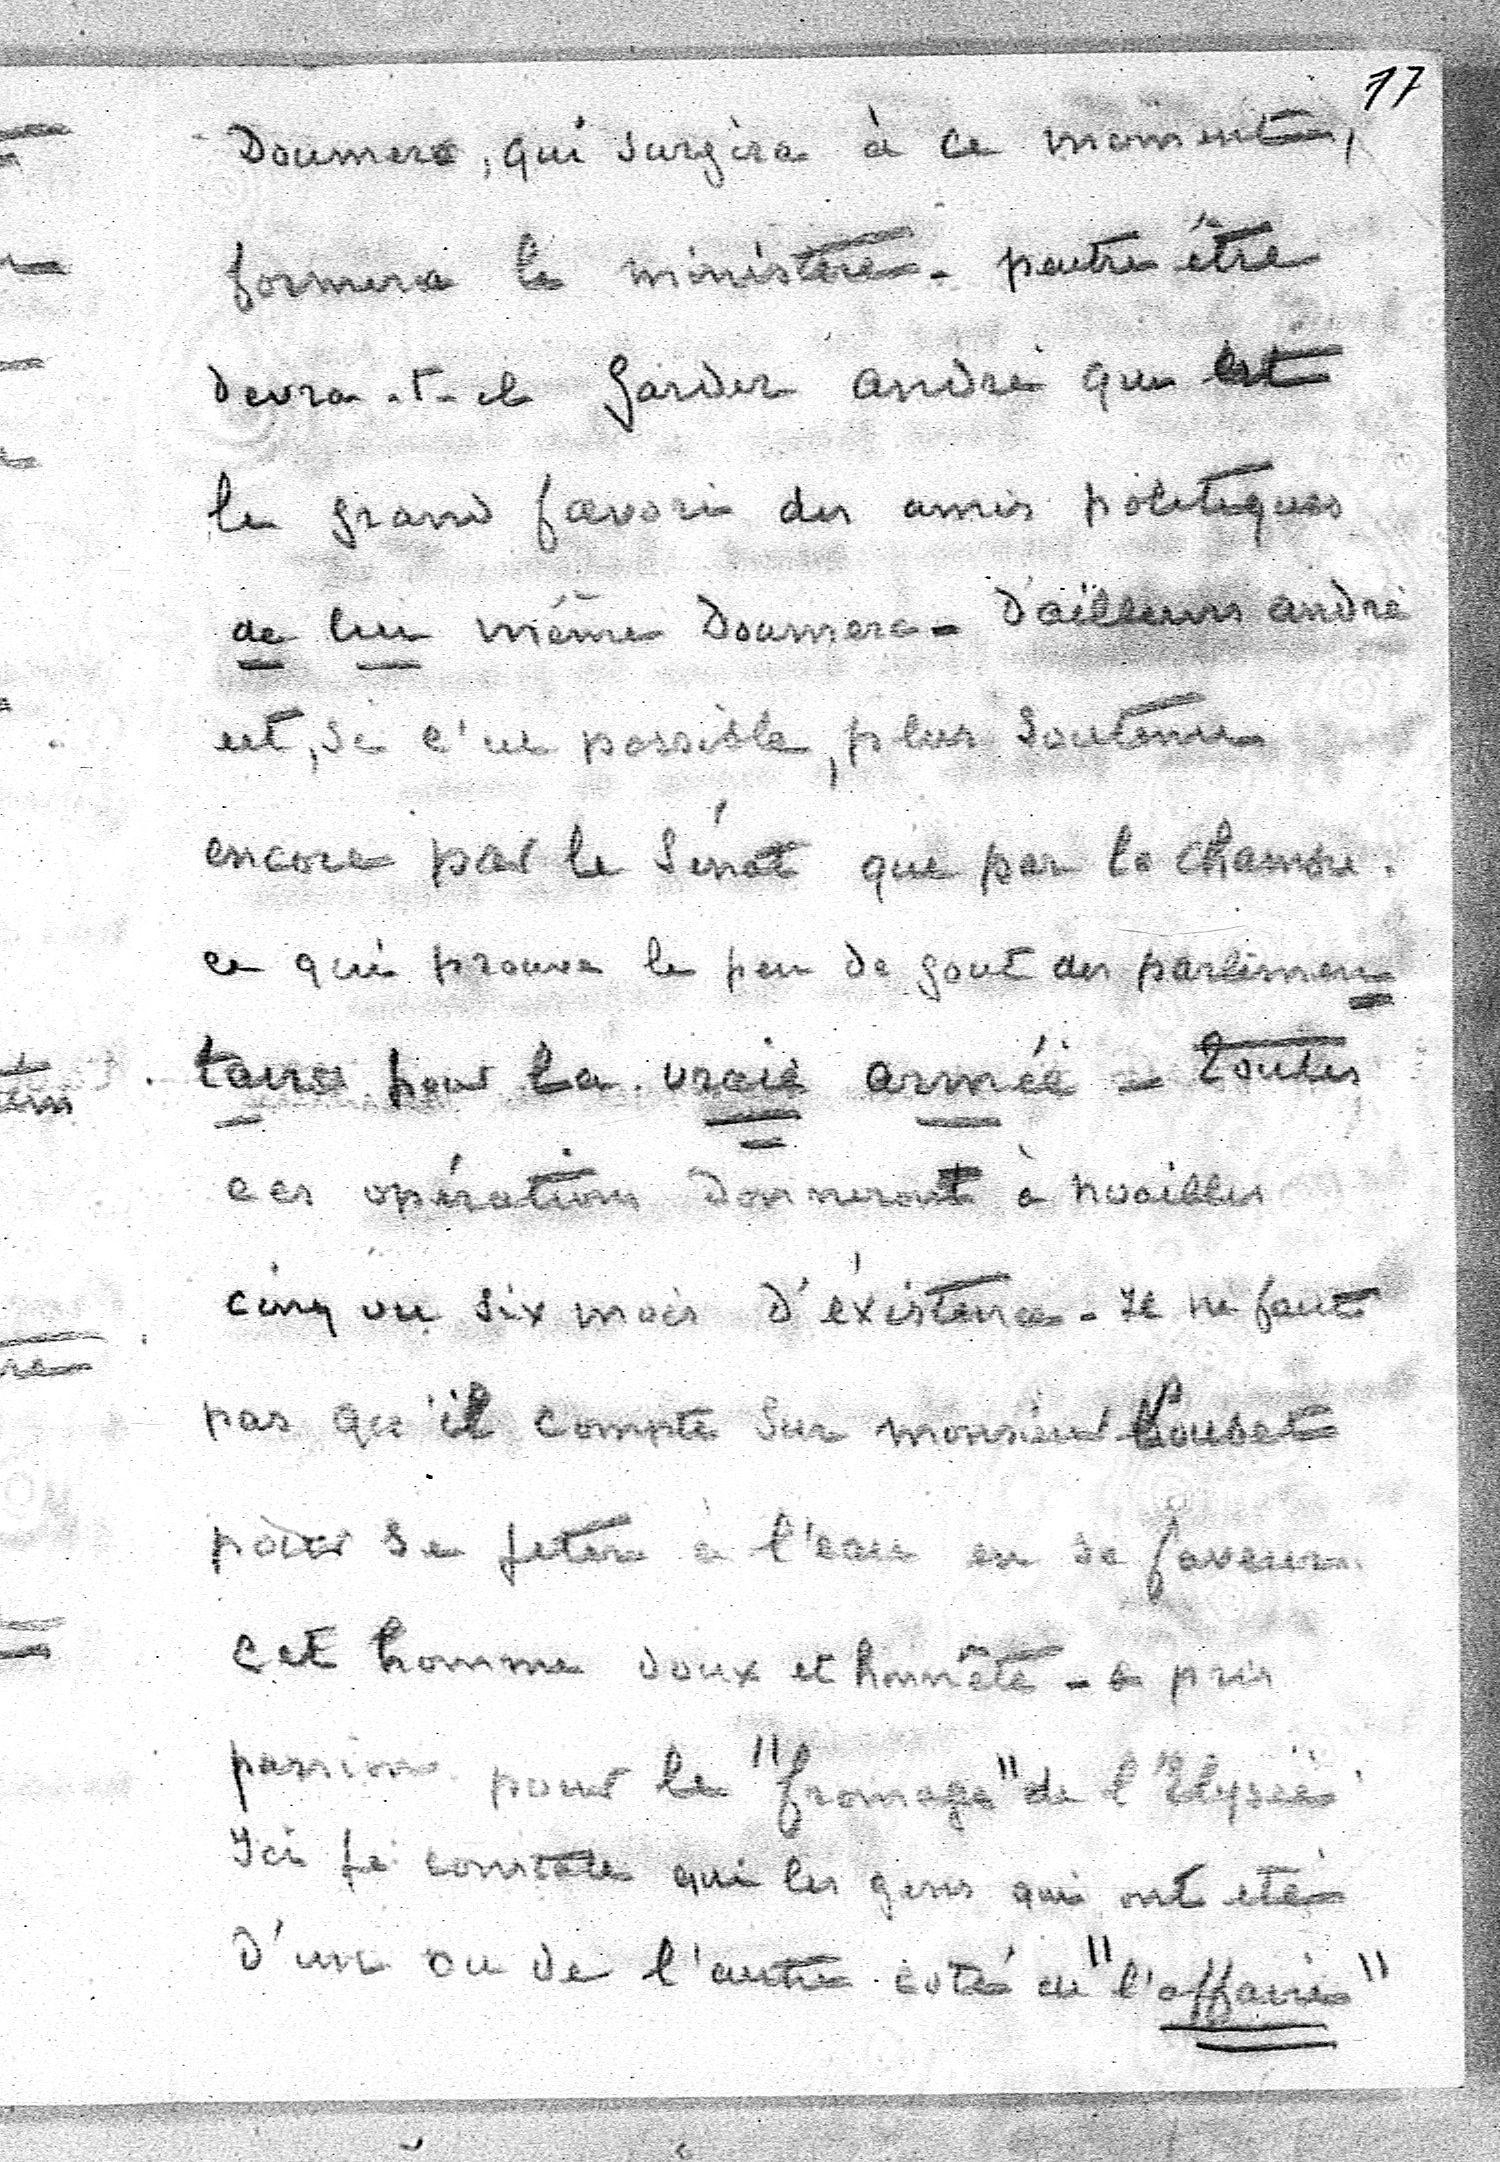 17
Doumera, qui surgira à ce moment,
formera le ministère - peutre être
devra-t-il garder andré qui est
le grand favori des amis politiques
de lui même Doumera - D'ailleurs andré
est, si c'est possible, plus soutenu
encore par le Sénat que par la chambre.
ce qui prouve le peu de gout des parlimen
taires pour la vraie armée - toutes
ces opérations donneront à noailles
cinq ou six mois d'éxistence - Il ne faut
pas qu'il compte sur monsieur Loubet
pour se jeter à l'eau en sa faveur.
cet homme doux et honnête - a pris
passion pour le "fromage" de l'Elysée
Ici je constate que les gens qui ont été
d'un ou de l'autre coté de "l'affaire"